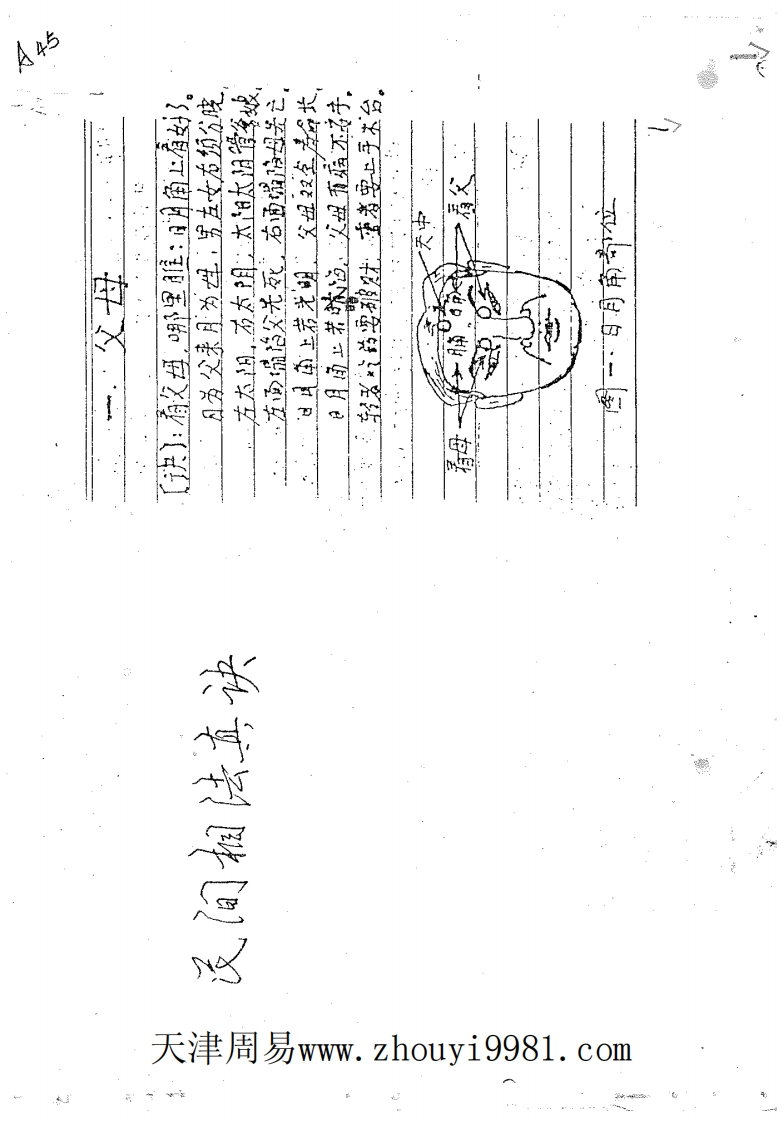 A45
民间相法真诀
一. 父母
〔诀〕: 看父母, 哪里瞧: 日月角上看好了。
日为父来月为母, 男左女右须分晓,
左太阳, 右太阴, 太阳太阴管爷娘,
左面塌陷父先死, 右面塌陷母先亡,
日月角上若光明, 父母双全寿命长,
日月角上若暗滞, 父母有病不安手,
轻者吃药要那财, 重者要上手术台。
天中
看父
看母
图一. 日月角部位
天津周易www.zhouyi9981.com